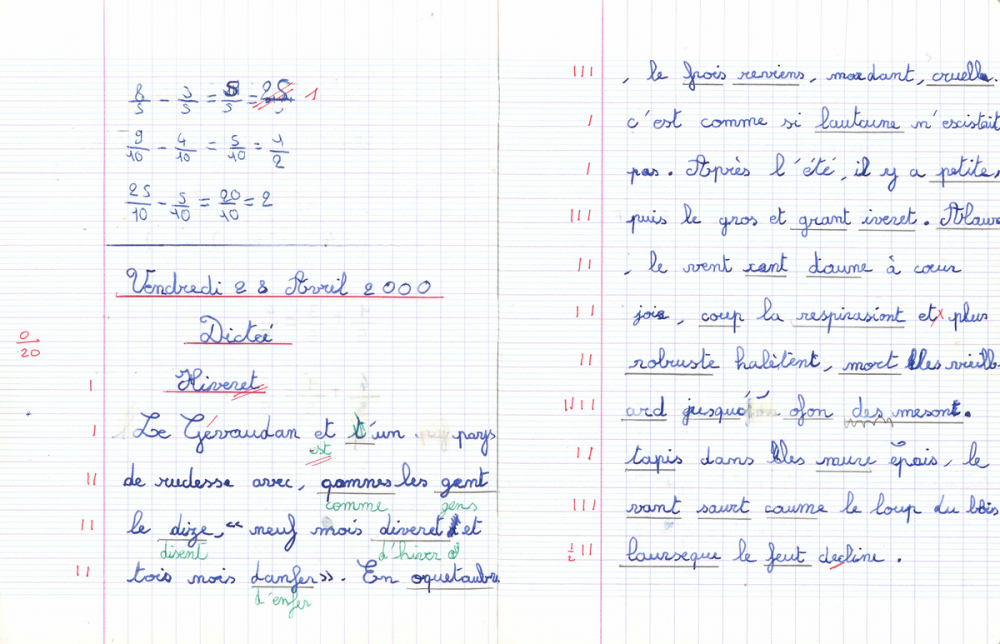 8/5 - 3/5 = 5/5 = 25 1
9/10 - 4/10 = 5/10 = 1/2
25/10 - 5/10 = 20/10 = 2
Vendredi 28 Avril 2000
Dicteé
0/20
I Hiveret
I Le Gévaudan et t'un pays
est
II de rudesse avec, gommes les gent
comme gens
II le dize, " neuf mois diveret et
disent d'hiver
II tois mois danfer». En oquetaubre
d'enfer
III , le frois reviens, mordant, cruelle.
I c'est comme si lautaune n'escistait
I pas. Après l'été, il y a petite,
III puis le gros et grant iveret. Alaure
II , le vent xant daune à cœur
II joie, coup la respirasiont et plus
II robuste halètent, mort les vieill-
IIIII ard jusqua ofon des mesont.
II tapis dans les maure épais, le
III vant saurt caume le loup du bois
½II laurseque le feut decline.